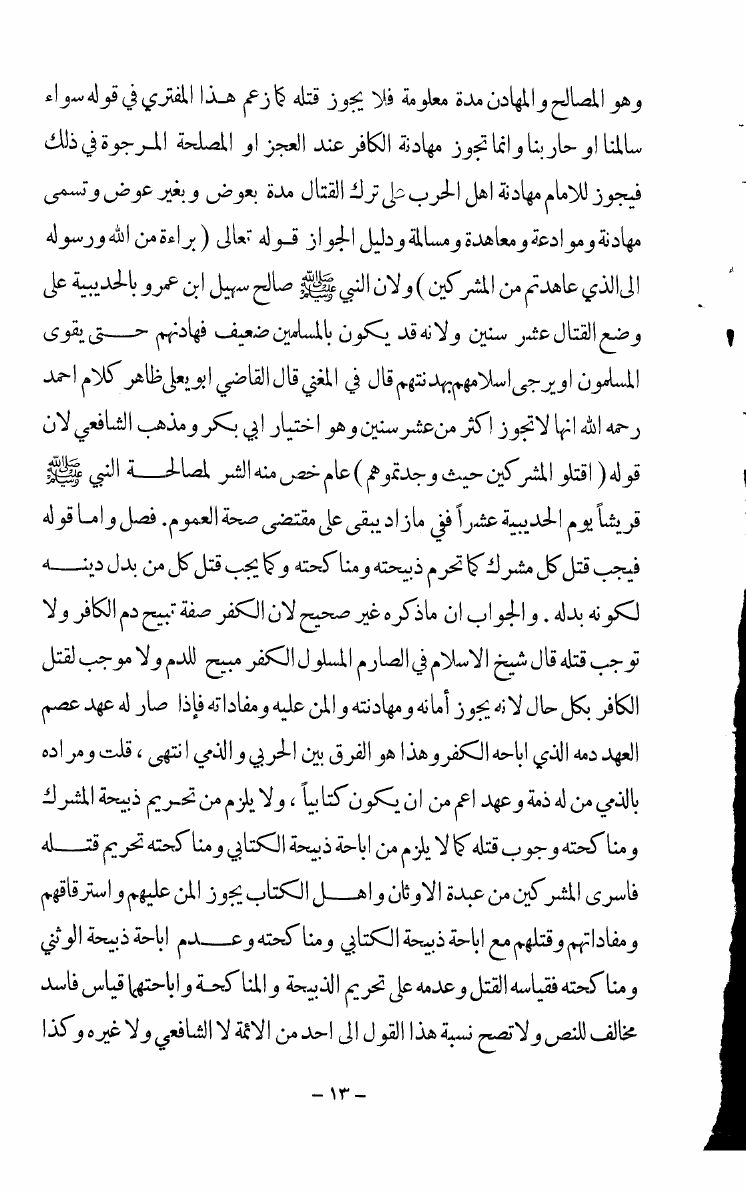 وهو المصالح والمهادن مدة معلومة فلا يجوز قتله كما زعم هذا المفتري في قوله سواء
سالمنا او حاربنا وانما تجوز مهادنة الكافر عند العجز او المصلحة المرجوة في ذلك
فيجوز للامام مهادنة اهل الحرب على ترك القتال مدة بعوض وبغير عوض وتسمى
مهادنة وموادعة ومعاهدة ومسالمة ودليل الجواز قوله تعالى ( براءة من الله ورسوله
الى الذي عاهدتم من المشركين ) ولان النبي ﷺ صالح سهيل ابن عمرو بالحديبية على
وضع القتال عشر سنين ولانه قد يكون بالمسلمين ضعيف فهادنهم حتى يقوى
المسلمون او يرجى اسلامهم بهدنتهم قال في المغني قال القاضي ابو يعلى ظاهر كلام احمد
رحمه الله انها لاتجوز اكثر من عشر سنين وهو اختيار ابي بكر ومذهب الشافعي لان
قوله ( اقتلو المشركين حيث وجدتموهم ) عام خص منه الشر لمصالحة النبي ﷺ
قريشاً يوم الحديبية عشراً ففي مازاد يبقى على مقتضى صحة العموم . فصل واما قوله
فيجب قتل كل مشرك كما تحرم ذبيحته ومناكحته وكما يجب قتل كل من بدل دينه
لكونه بدله . والجواب ان ماذكره غير صحيح لان الكفر صفة تبيح دم الكافر ولا
توجب قتله قال شيخ الاسلام في الصارم المسلول الكفر مبيح للدم ولا موجب لقتل
الكافر بكل حال لانه يجوز أمانه ومهادنته والمن عليه ومفاداته فإذا صار له عهد عصم
العهد دمه الذي اباحه الكفر وهذا هو الفرق بين الحربي والذمي انتهى ، قلت ومراده
بالذمي من له ذمة وعهد اعم من ان يكون كتابياً ، ولا يلزم من تحريم ذبيحة المشرك
ومناكحته وجوب قتله كما لا يلزم من اباحة ذبيحة الكتابي ومناكحته تحريم قتله
فاسرى المشركين من عبدة الاوثان واهل الكتاب يجوز المن عليهم واسترقاقهم
ومفاداتهم وقتلهم مع اباحة ذبيحة الكتابي ومناكحته وعدم اباحة ذبيحة الوثني
ومناكحته فقياسه القتل وعدمه على تحريم الذبيحة والمناكحة واباحتها قياس فاسد
مخالف للنص ولاتصح نسبة هذا القول الى احد من الائمة لا الشافعي ولا غيره وكذا
– ١٣ –